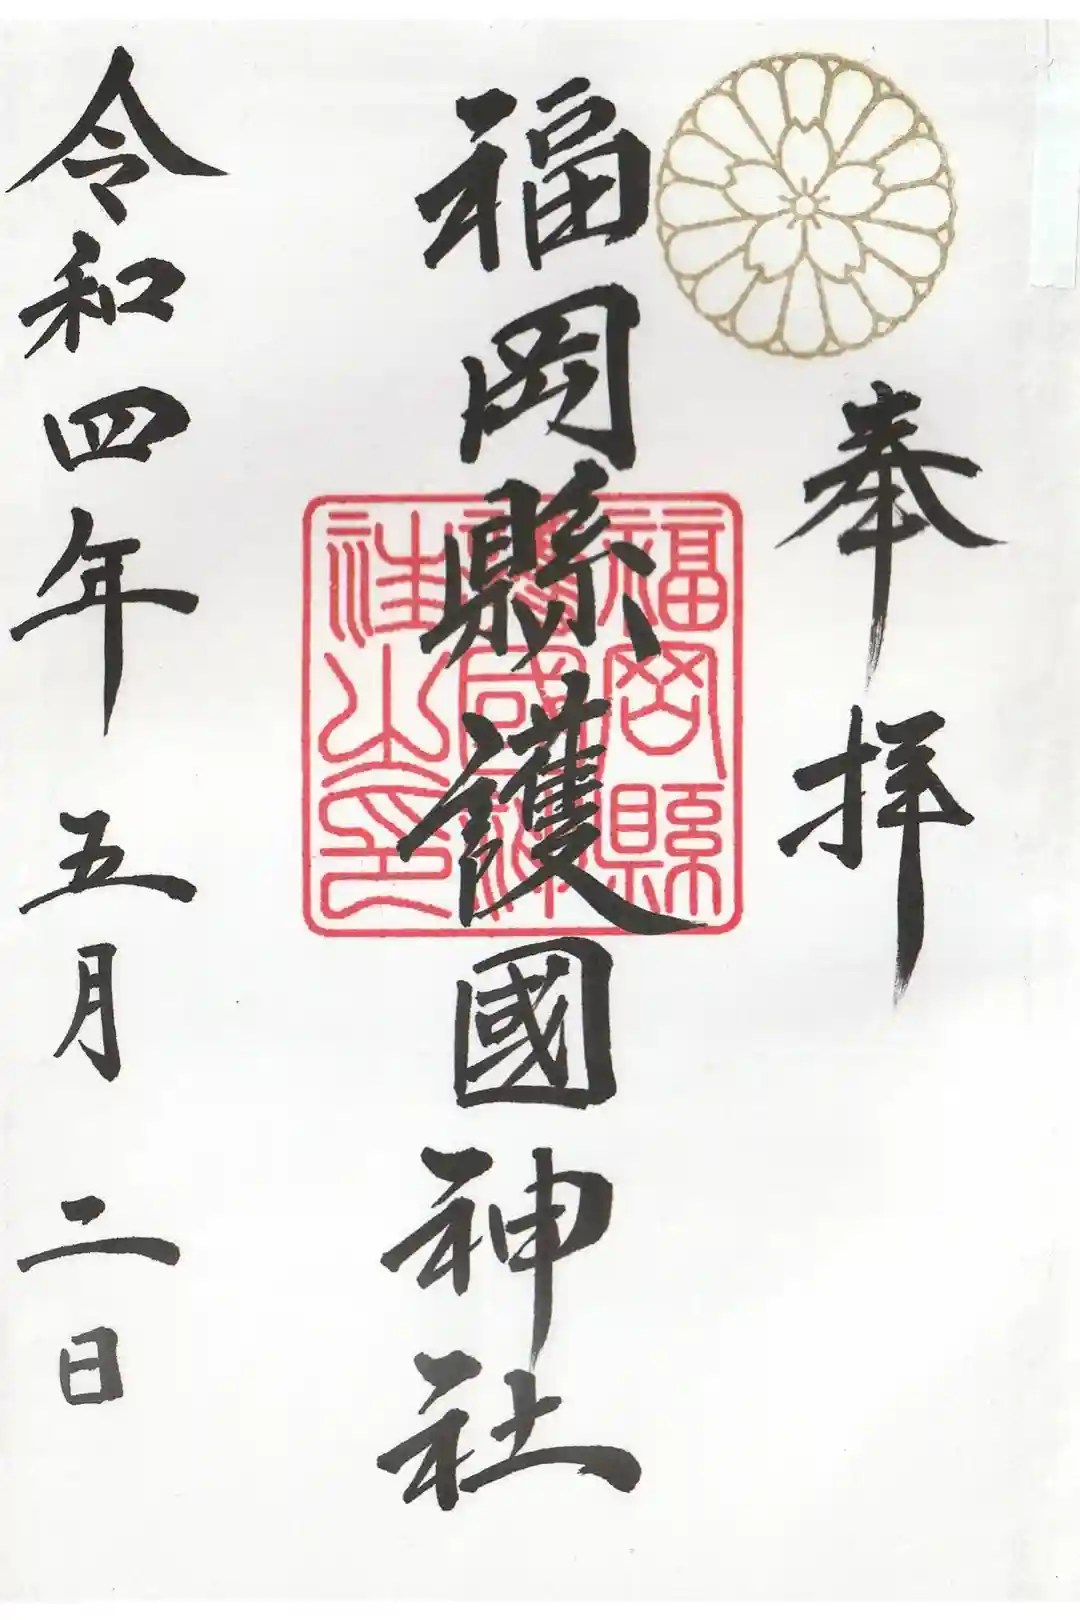 奉拝
福岡縣護國神社
福岡縣護國神社之印
令和四年五月二日